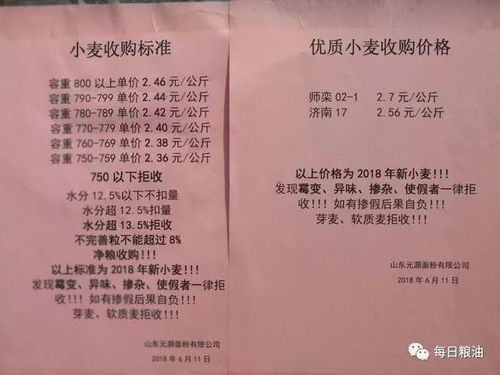 小麦收购标准
容重 800 以上单价 2.46 元/公斤
容重 790-799 单价 2.44 元/公斤
容重 780-789 单价 2.42 元/公斤
容重 770-779 单价 2.40 元/公斤
容重 760-769 单价 2.38 元/公斤
容重 750-759 单价 2.36 元/公斤
750 以下拒收
水分 12.5%以下不扣量
水分超 12.5%扣量
水分超 13.5%拒收
不完善粒不能超过 8%
净粮收购!!!
以上标准为 2018 年新小麦!!!
发现霉变、异味、掺杂、使假者一律拒
收!!!如有掺假后果自负!!!
芽麦、软质麦拒收!!!
山东元源面粉有限公司
2018 年 6 月 11 日
优质小麦收购价格
师栾 02-1 2.7 元/公斤
济南 17 2.56 元/公斤
以上价格为 2018 年新小麦!!!
发现霉变、异味、掺杂、使假者一律拒
收!!!如有掺假后果自负!!!
芽麦、软质麦拒收!!!
山东元源面粉有限公司
2018 年 6 月 11 日
每日粮油